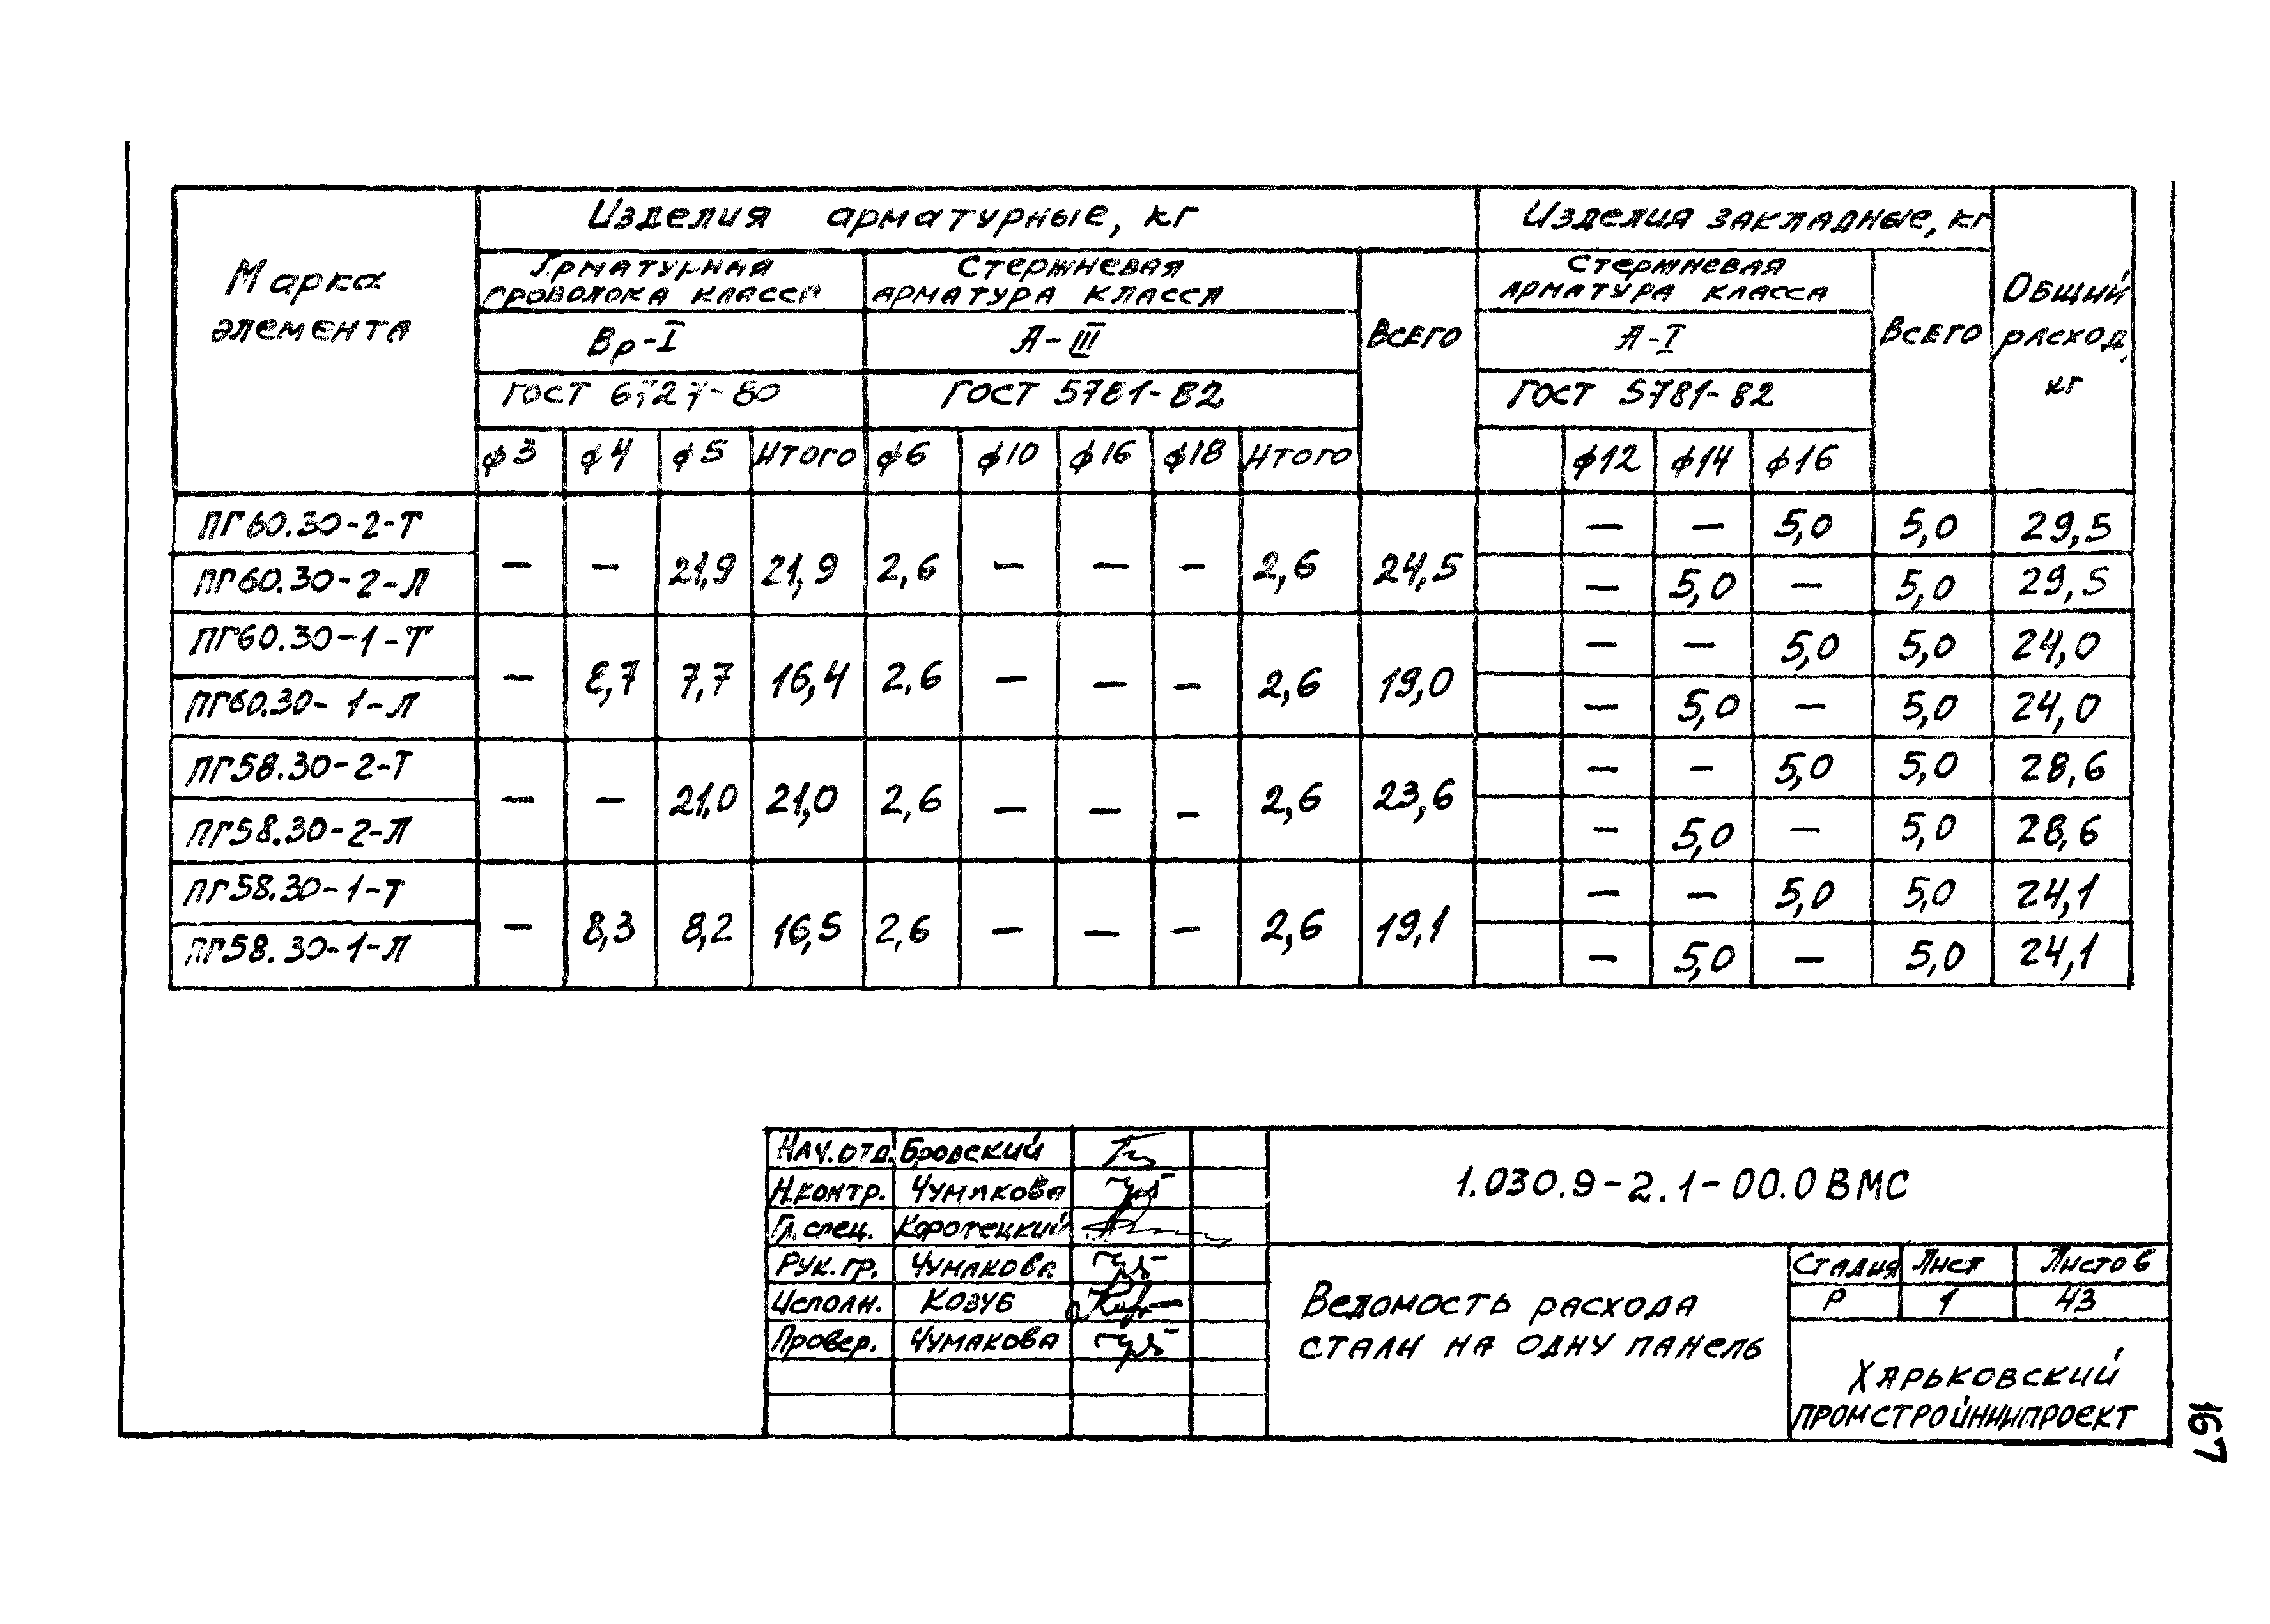 Марка элемента
Изделия арматурные, кг
Изделия закладные, кг
Общий расход, кг
Арматурная проволока класса
Стержневая арматура класса
Всего
Стержневая арматура класса
Всего
Вр-I
А-III
А-I
ГОСТ 6727-80
ГОСТ 5781-82
ГОСТ 5781-82
ф3 ф4 ф5 Итого ф6 ф10 ф16 ф18 Итого ф12 ф14 ф16
ПГ60.30-2-Т — — 21,9 21,9 2,6 — — — 2,6 24,5 — — 5,0 5,0 29,5
ПГ60.30-2-Л — 5,0 — 5,0 29,5
ПГ60.30-1-Т — 8,7 7,7 16,4 2,6 — — — 2,6 19,0 — — 5,0 5,0 24,0
ПГ60.30-1-Л — 5,0 — 5,0 24,0
ПГ58.30-2-Т — — 21,0 21,0 2,6 — — — 2,6 23,6 — — 5,0 5,0 28,6
ПГ58.30-2-Л — 5,0 — 5,0 28,6
ПГ58.30-1-Т — 8,3 8,2 16,5 2,6 — — — 2,6 19,1 — — 5,0 5,0 24,1
ПГ58.30-1-Л — 5,0 — 5,0 24,1
Нач.отд. Бродский
Н.контр. Чумакова
Гл.спец. Коротецкий
Рук.гр. Чумакова
Исполн. Козуб
Провер. Чумакова
1.030.9-2.1-00.0ВМС
Ведомость расхода
стали на одну панель
Стадия Лист Листов
Р 1 43
Харьковский
ПРОМСТРОЙНИИПРОЕКТ
167